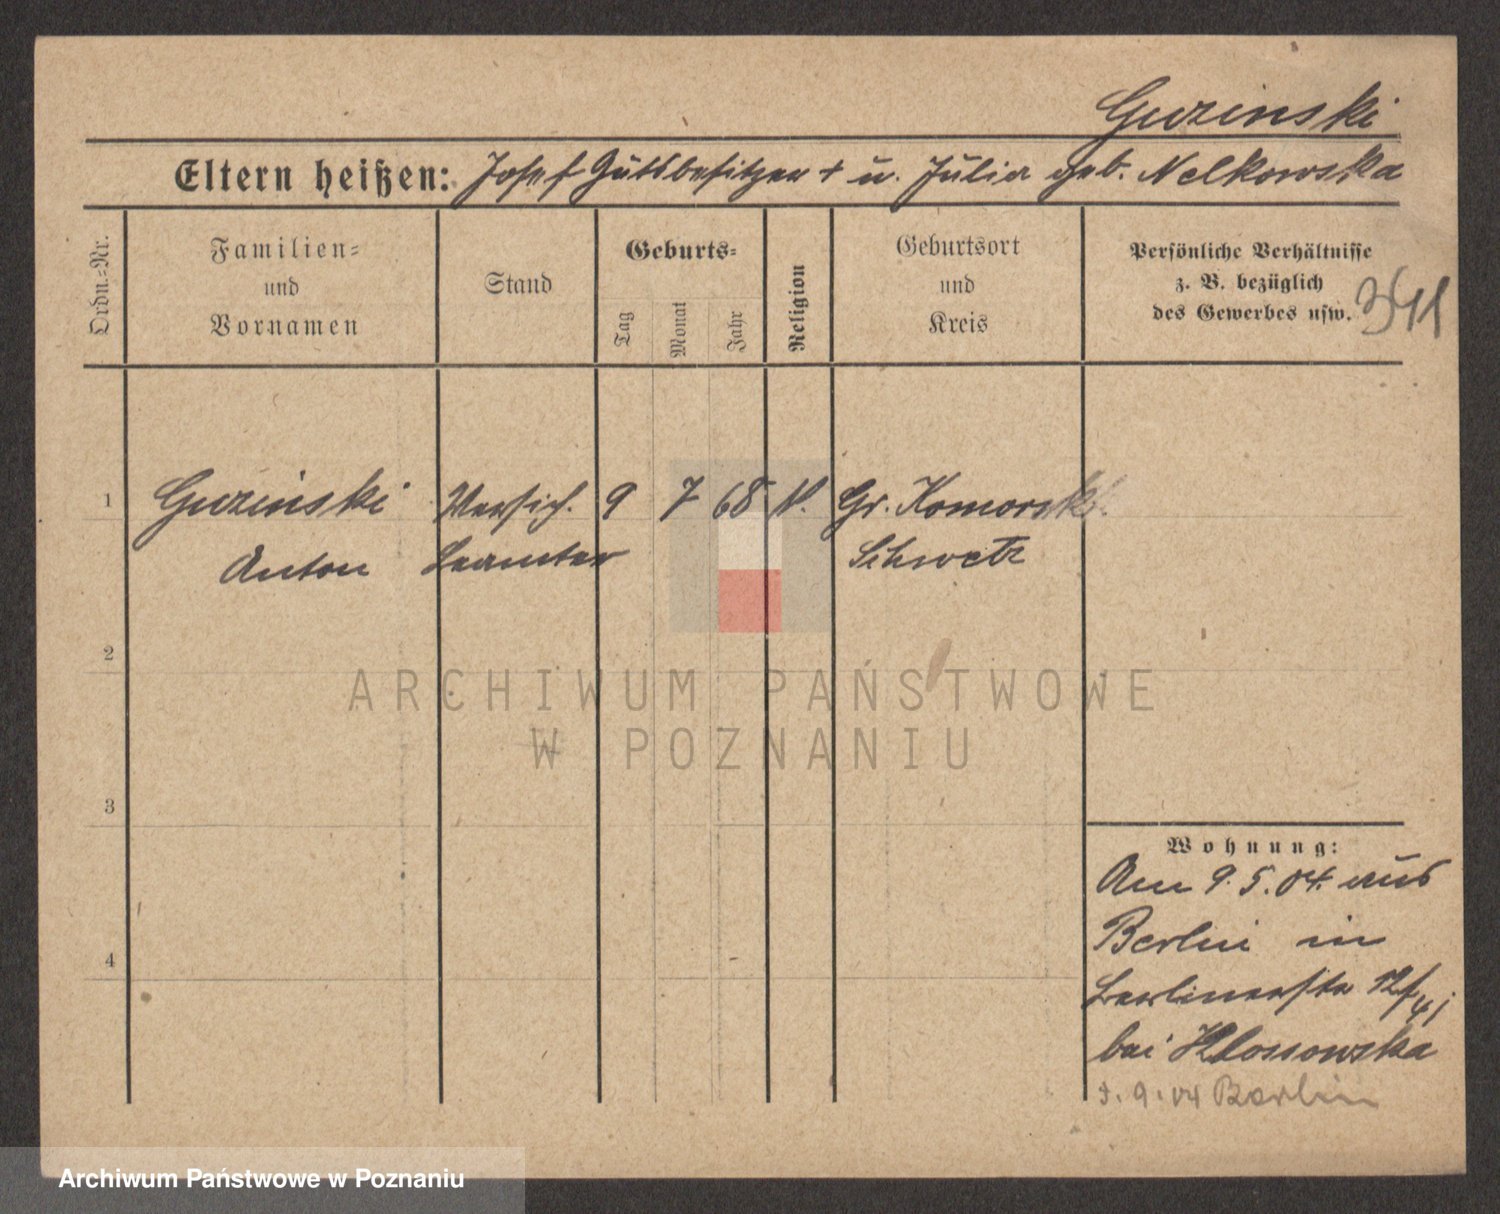 Guzinski
Eltern heißen: Josef Gutsbesitzer + u. Julia geb. Nelkowska
Ordn.-Nr.
Familien-
und
Vornamen
Stand
Geburts-
Tag
Monat
Jahr
Religion
Geburtsort
und
Kreis
Persönliche Verhältnisse
z. B. bezüglich
des Gewerbes usw.
1 Guzinski Versich. 9 7 68 K. Gr. Komorsk
Anton beamter Schwetz
2
3
4
Wohnung:
Am 9. 5. 04. aus
Berlin in
Berlinerstr 12/41
bei Klossowska
9. 04 Berlin
ARCHIWUM PAŃSTWOWE
W POZNANIU
Archiwum Państwowe w Poznaniu